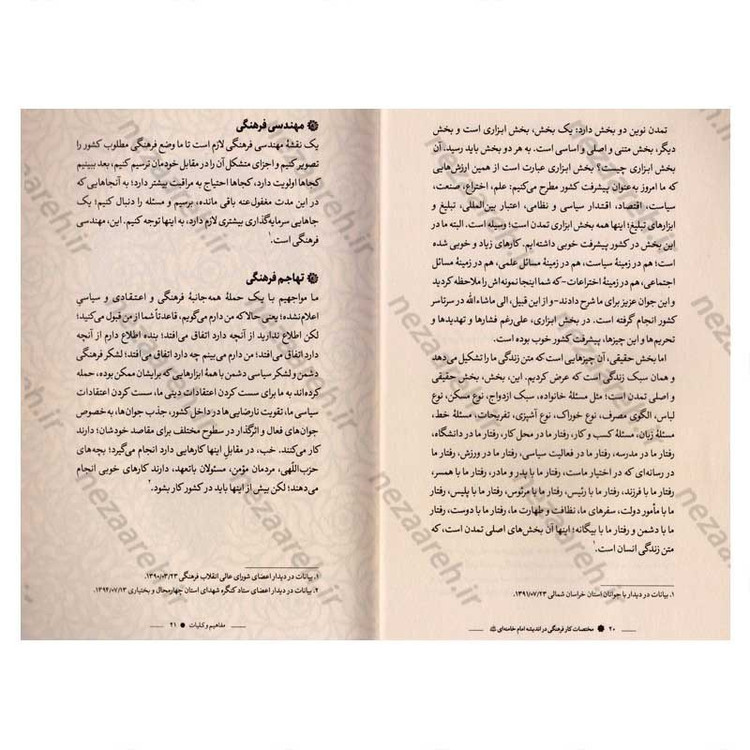 تمدن نوین دو بخش دارد: یک بخش، بخش ابزاری است و بخش
دیگر، بخش متنی و اصلی و اساسی است. به هر دو بخش باید رسید. آن
بخش ابزاری چیست؟ بخش ابزاری عبارت است از همین ارزش‌هایی
که ما امروز به‌عنوان پیشرفت کشور مطرح می‌کنیم: علم، اختراع، صنعت،
سیاست، اقتصاد، اقتدار سیاسی و نظامی، اعتبار بین‌المللی، تبلیغ و
ابزارهای تبلیغ؛ اینها همه بخش ابزاری تمدن است؛ وسیله است. البته ما در
این بخش در کشور پیشرفت خوبی داشته‌ایم. کارهای زیاد و خوبی شده
است؛ هم در زمینهٔ سیاست، هم در زمینهٔ مسائل علمی، هم در زمینهٔ مسائل
اجتماعی، هم در زمینهٔ اختراعات-که شما اینجا نمونه‌اش را ملاحظه کردید
و این جوان عزیز برای ما شرح دادند-و از این قبیل، الی ماشاءالله در سرتاسر
کشور انجام گرفته است. در بخش ابزاری، علی‌رغم فشارها و تهدیدها و
تحریم‌ها و این چیزها، پیشرفت کشور خوب بوده است.
اما بخش حقیقی، آن چیزهایی است که متن زندگی ما را تشکیل می‌دهد
و همان سبک زندگی است که عرض کردیم. این، بخش، بخش حقیقی
و اصلی تمدن است؛ مثل مسئلهٔ خانواده، سبک ازدواج، نوع مسکن، نوع
لباس، الگوی مصرف، نوع خوراک، نوع آشپزی، تفریحات، مسئلهٔ خط،
مسئلهٔ زبان، مسئلهٔ کسب و کار، رفتار ما در محل کار، رفتار ما در دانشگاه،
رفتار ما در مدرسه، رفتار ما در فعالیت سیاسی، رفتار ما در ورزش، رفتار ما
در رسانه‌ای که در اختیار ماست، رفتار ما با پدر و مادر، رفتار ما با همسر،
رفتار ما با فرزند، رفتار ما با رئیس، رفتار ما با مرئوس، رفتار ما با پلیس، رفتار
ما با مأمور دولت، سفرهای ما، نظافت و طهارت ما، رفتار ما با دوست، رفتار
ما با دشمن و رفتار ما با بیگانه؛ اینها آن بخش‌های اصلی تمدن است، که
متن زندگی انسان است.۱
۱. بیانات در دیدار با جوانان استان خراسان شمالی ۱۳۹۱/۰۷/۲۳.
۲۰ مختصات کار فرهنگی در اندیشه امام خامنه‌ای
مهندسی فرهنگی
یک نقشهٔ مهندسی فرهنگی لازم است تا ما وضع فرهنگی مطلوب کشور را
تصویر کنیم و اجزای متشکل آن را در مقابل خودمان ترسیم کنیم، بعد ببینیم
کجاها اولویت دارد، کجاها احتیاج به مراقبت بیشتر دارد؛ به آنجاهایی که
در این مدت مغفول‌عنه باقی مانده، برسیم و مسئله را دنبال کنیم؛ یک
جاهایی سرمایه‌گذاری بیشتری لازم دارد، به اینها توجه کنیم. این، مهندسی
فرهنگی است.۱
تهاجم فرهنگی
ما مواجهیم با یک حملهٔ همه‌جانبهٔ فرهنگی و اعتقادی و سیاسیِ
اعلام‌نشده؛ یعنی حالا که من دارم می‌گویم، قاعدتاً شما از من قبول می‌کنید؛
لکن اطلاع ندارید از آنچه دارد اتفاق می‌افتد؛ بنده اطلاع دارم از آنچه
دارد اتفاق می‌افتد؛ من دارم می‌بینم چه دارد اتفاق می‌افتد؛ لشکر فرهنگی
دشمن و لشکر سیاسی دشمن با همهٔ ابزارهایی که برایشان ممکن بوده، حمله
کرده‌اند به ما برای سست کردن اعتقادات دینی ما، سست کردن اعتقادات
سیاسی ما، تقویت نارضایی‌ها در داخل کشور، جذب جوان‌ها، به‌خصوص
جوان‌های فعال و اثرگذار در سطوح مختلف برای مقاصد خودشان؛ دارند
کار می‌کنند. خب، در مقابل اینها کارهایی دارد انجام می‌گیرد؛ بچه‌های
حزب‌اللّهی، مردمان مؤمن، مسئولان باتعهد، دارند کارهای خوبی انجام
می‌دهند؛ لکن بیش از اینها باید در کشور کار بشود.۲
۱. بیانات در دیدار اعضای شورای عالی انقلاب فرهنگی ۱۳۹۰/۰۳/۲۳.
۲. بیانات در دیدار اعضای ستاد کنگره شهدای استان چهارمحال و بختیاری ۱۳۹۴/۰۷/۱۳.
مفاهیم و کلیات ۲۱
nezaareh.ir